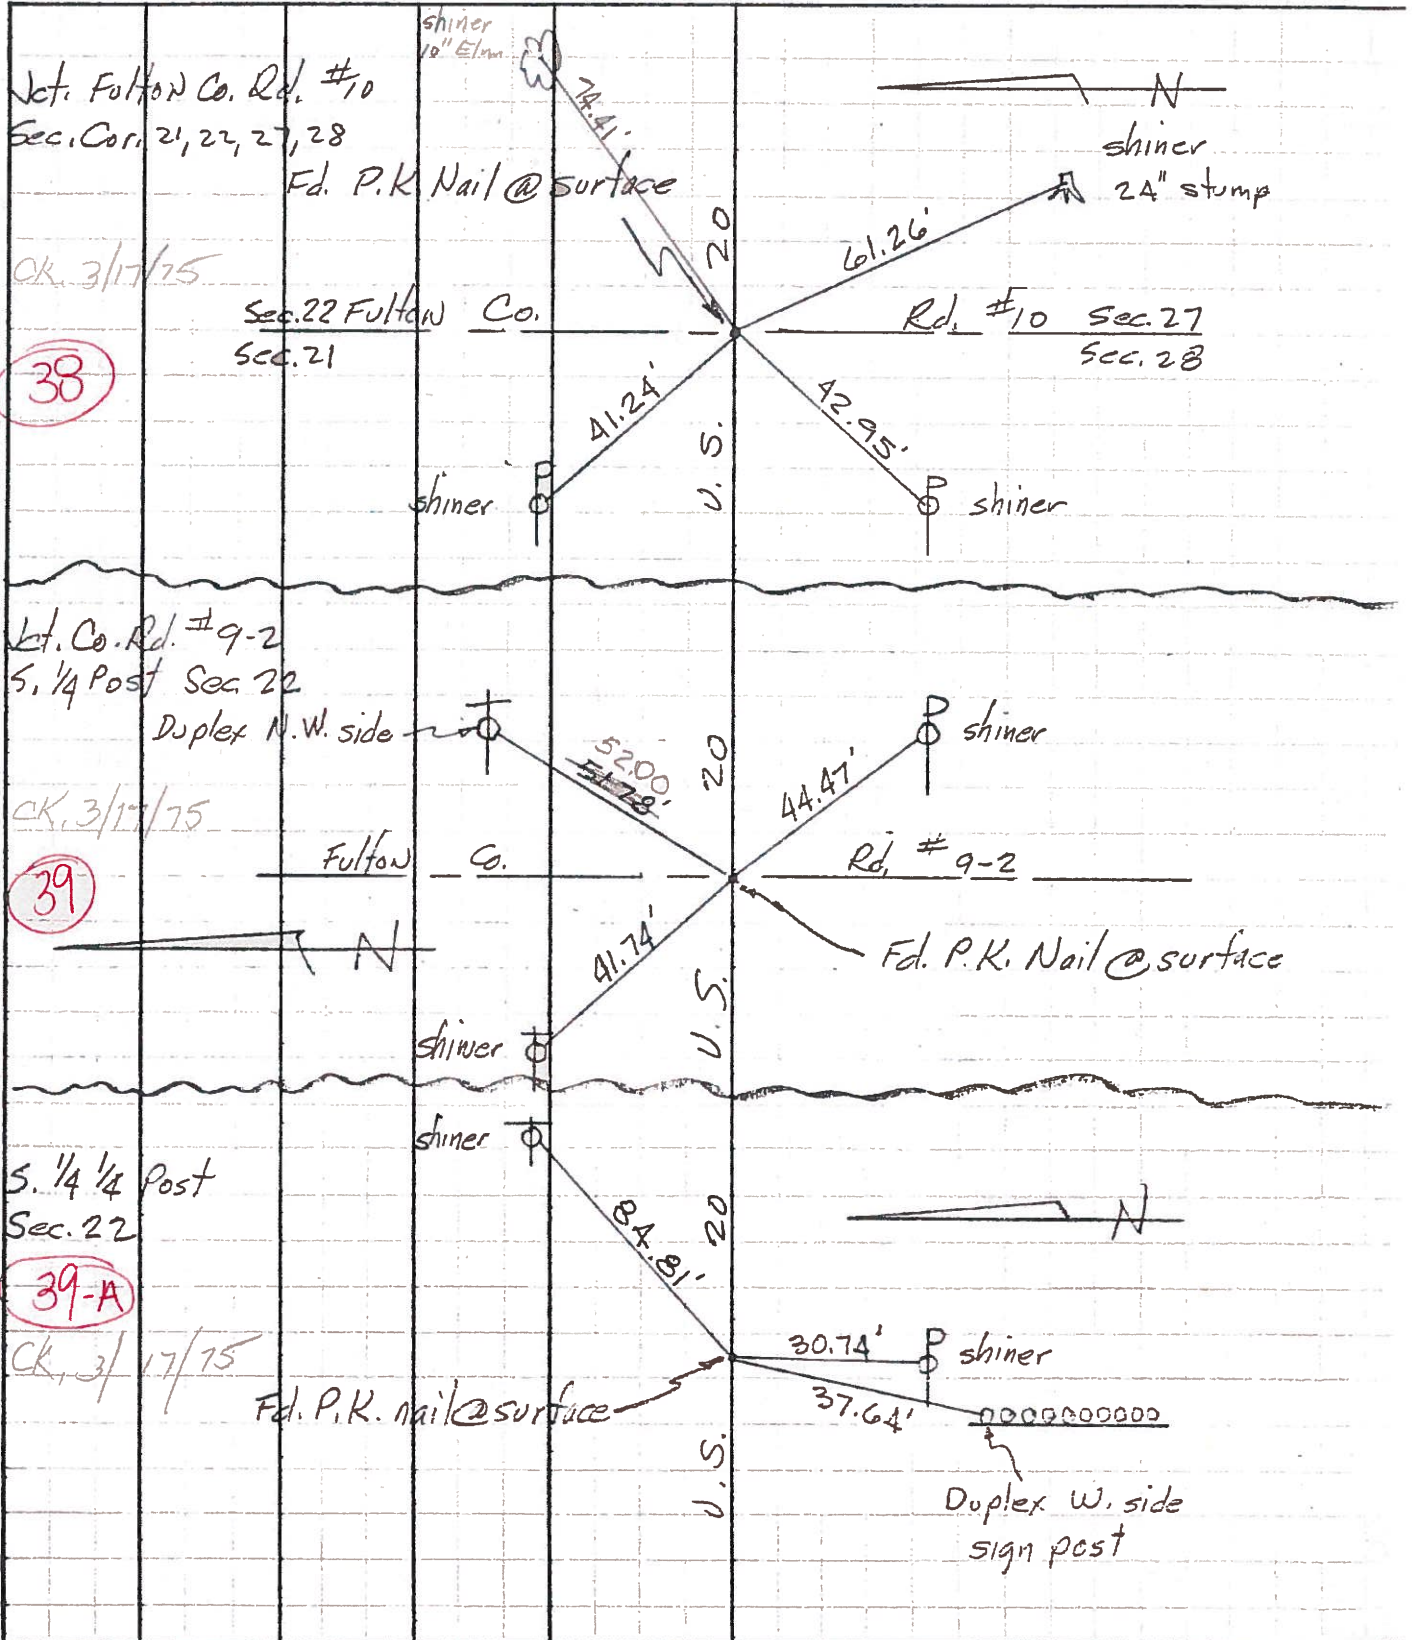 shiner
10" Elm
Jct. Fulton Co. Rd. #10
Sec. Cor. 21, 22, 27, 28
74.41'
N
Fd. P.K. Nail @ surface
shiner
24" stump
CK. 3/17/75
61.26'
U.S. 20
Sec. 22 Fulton Co. Rd. #10 Sec. 27
Sec. 21 Sec. 28
38
41.24'
42.95'
shiner
shiner
Jct. Co. Rd. #9-2
S. 1/4 Post Sec. 22
Duplex N.W. side
shiner
52.00
51.78'
44.47'
U.S. 20
CK. 3/17/75
Fulton Co. Rd. # 9-2
39
N
41.74'
Fd. P.K. Nail @ surface
shiner
shiner
S. 1/4 1/4 Post
Sec. 22
84.81'
U.S. 20
N
39-A
CK. 3/17/75
30.74'
shiner
Fd. P.K. nail @ surface
37.64'
Duplex W. side
sign post